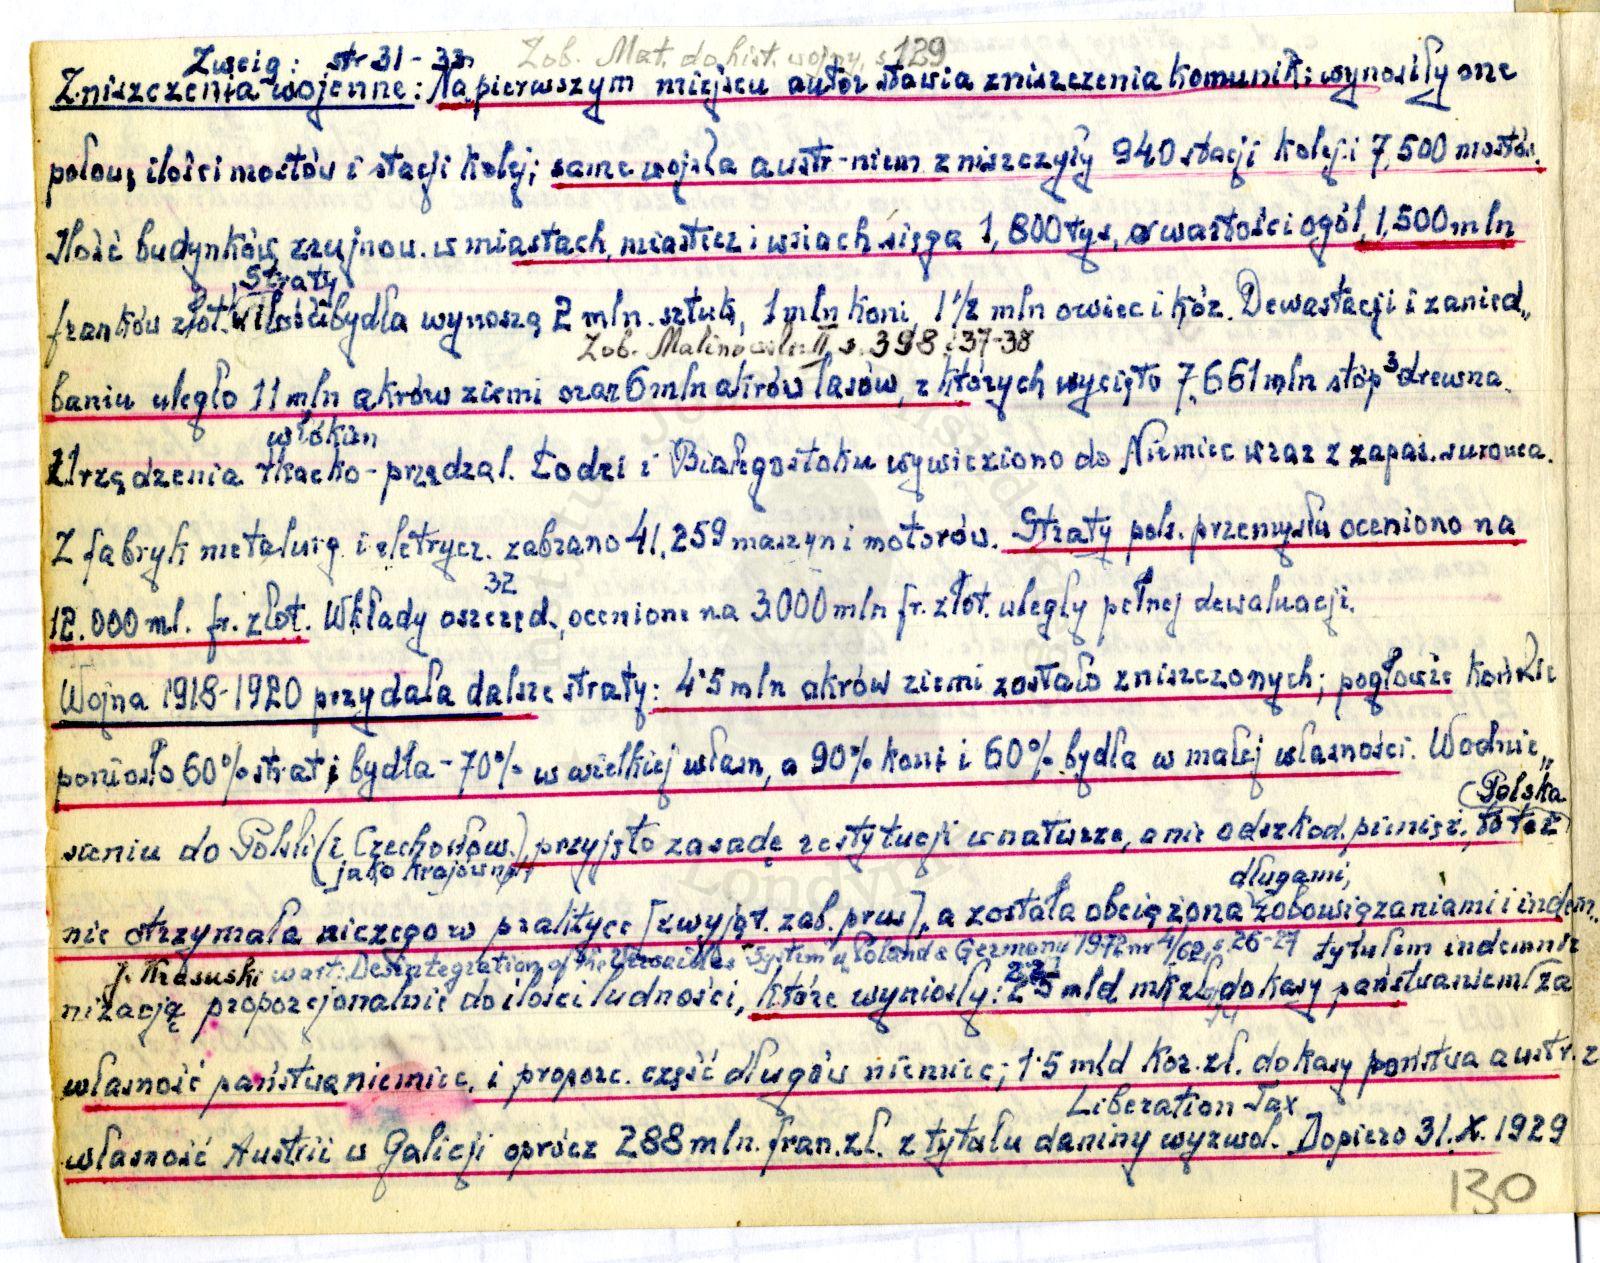 Zweig: str 31-33 Zob. Mat. do hist. wojny, s 129
Zniszczenia wojenne: Na pierwszym miejscu autor stawia zniszczenia komunik; wynosiły one
połowę ilości mostów i stacji kolej; same wojska austr-niem zniszczyły 940 stacji kolej. i 7,500 mostów.
Ilość budynków zrujnow. w miastach, miastecz i wsiach sięga 1,800 tys, o wartości ogól, 1,500 mln
Straty
franków złot. w ilości bydła wynoszą 2 mln. sztuk, 1 mln koni, 1 1/2 mln owiec i kóz. Dewastacji i zanied„
Zob. Malinowski II, s. 398 i 37-38
baniu uległo 11 mln akrów ziemi oraz 6 mln akrów lasów, z których wycięto 7,661 mln stóp³ drewna.
włókien
Urządzenia tkacko-przędzal. Łodzi i Białegostoku wywieziono do Niemiec wraz z zapas. surowca.
Z fabryk metalurg. i eletrycz. zabrano 41,259 maszyn i motorów. Straty pols. przemysłu oceniono na
32
12.000 ml. fr. złot. Wkłady oszczęd., ocenione na 3000 mln fr. złot. uległy pełnej dewaluacji.
Wojna 1918-1920 przydała dalsze straty: 4·5 mln akrów ziemi zostało zniszczonych; pogłowie końskie
poniosło 60% strat i bydła - 70% w wielkiej własn, a 90% koni i 60% bydła w małej własności. W odnie„
Polska
sieniu do Polski (i Czechosłow.), przyjęto zasadę restytucji w naturze, a nie odszkod. pienięż, to też
jako krajów
długami,
nie otrzymała niczego w praktyce [z wyjąt. zab. prus], a została obciążona zobowiązaniami i indem.
J. Krasuski w art: Desintegration of the Versailles System "Poland & Germany" 1972 nr 4/62, s. 26-27 tytułem indemniz
nizacją proporcjonalnie do ilości ludności, które wyniosły: 2·5 mld mk zł do kasy państwa niem za
własność państwa niemiec, i proporc. część długów niemiec; 1·5 mld kor. zł. do kasy państwa austr. z
Liberation Tax
własność Austrii w Galicji oprócz 288 mln. fran. zł. z tytułu daniny wyzwol. Dopiero 31. X. 1929
130